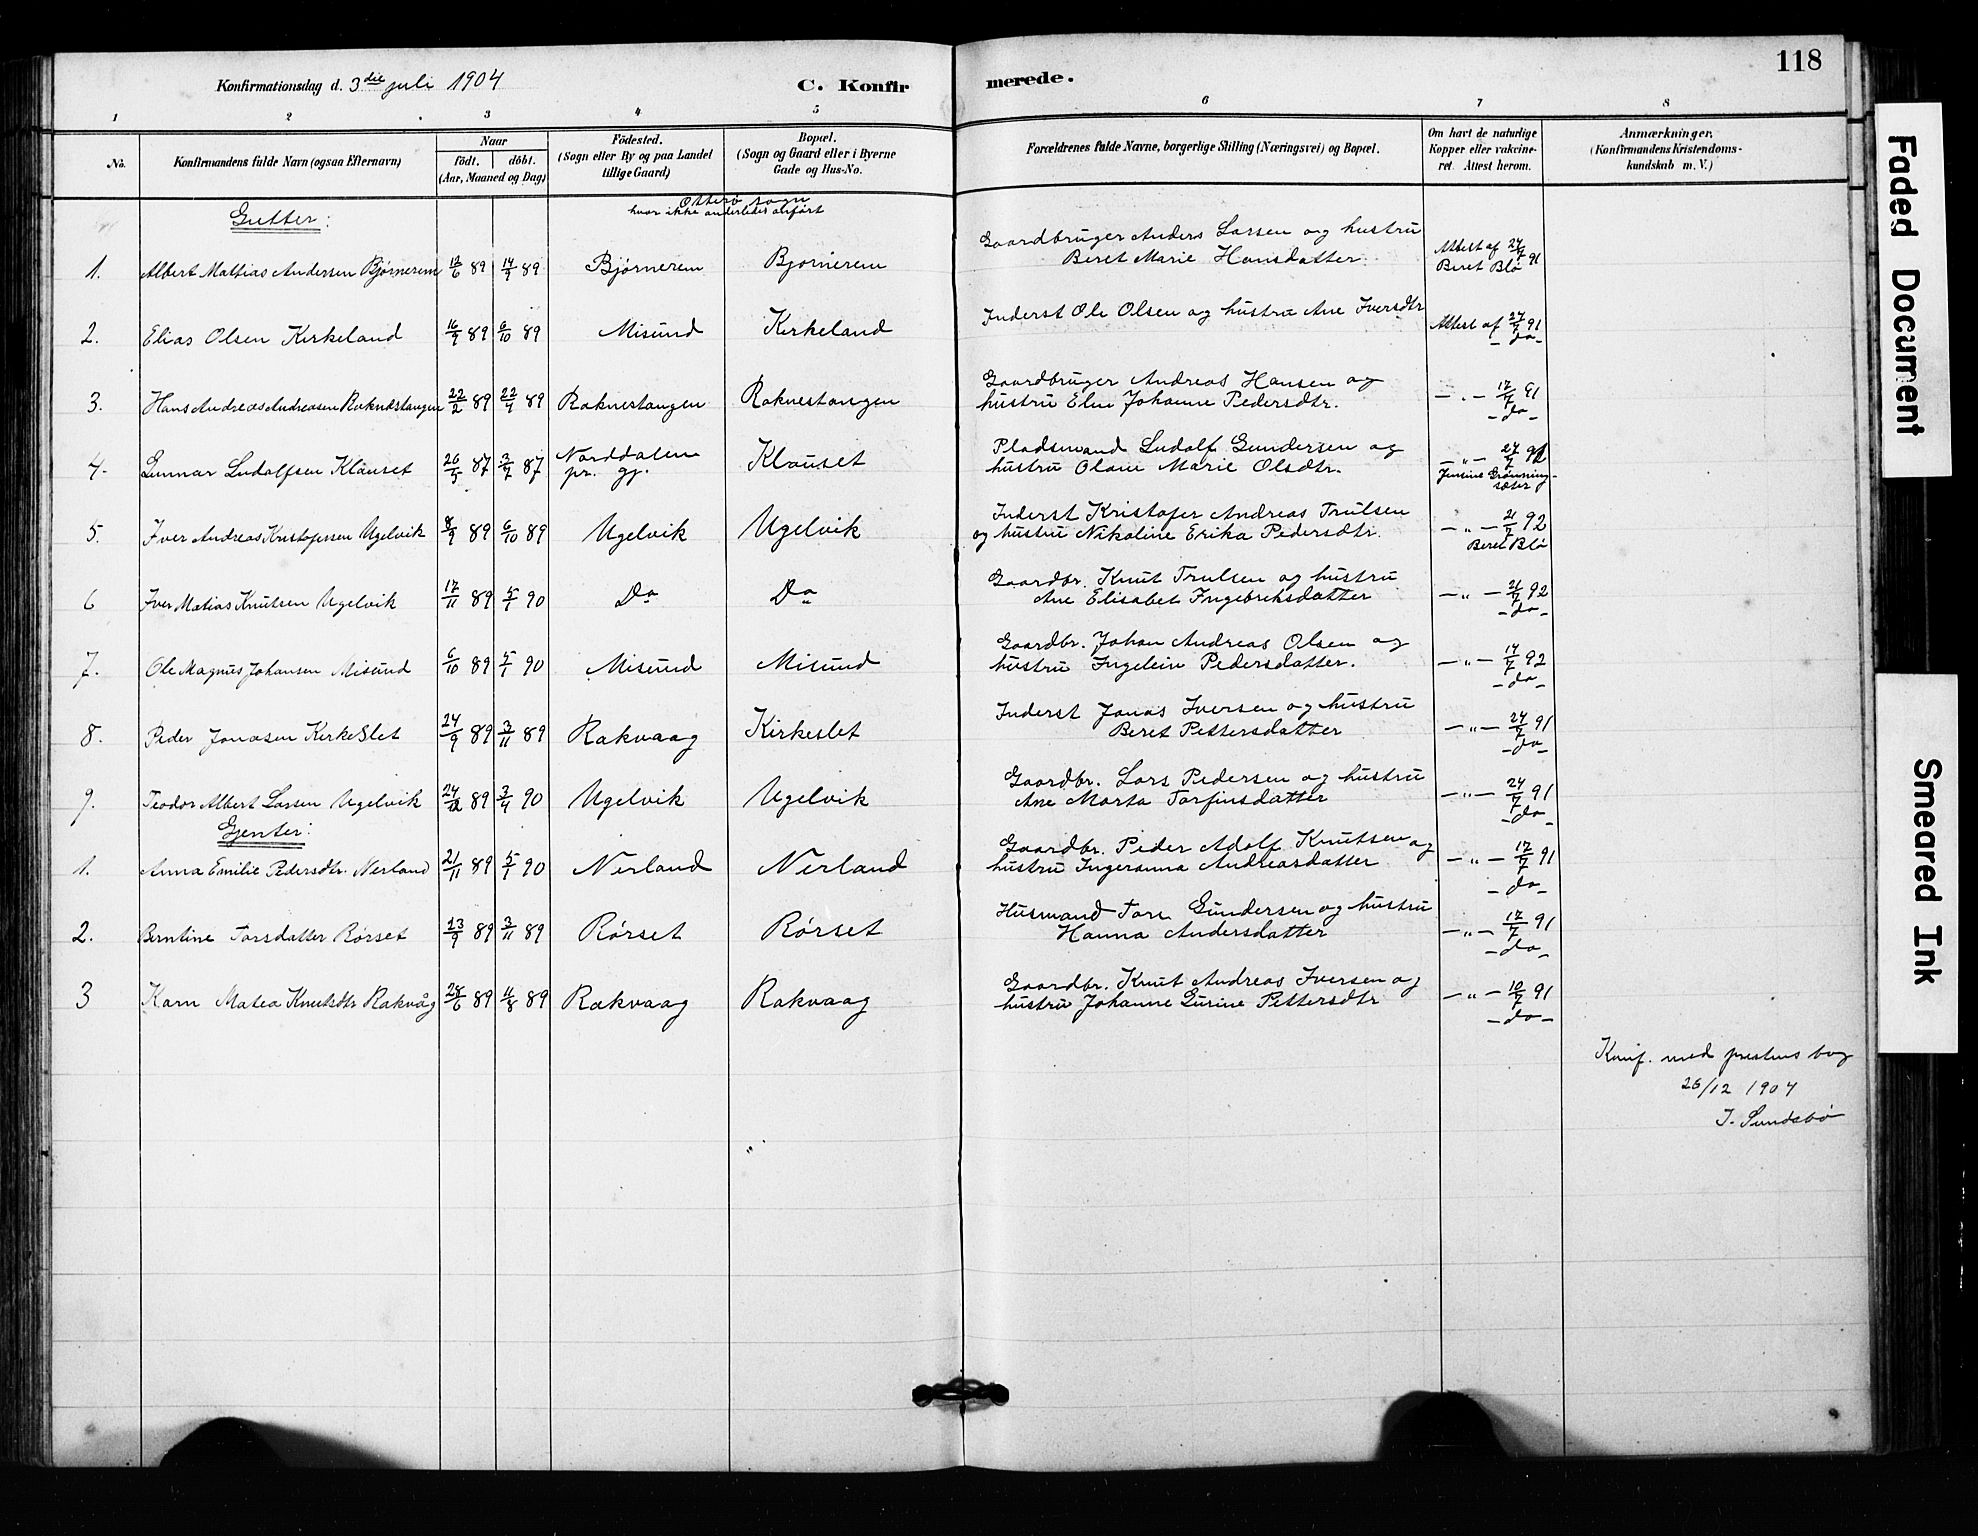 118
Konfirmationsdag d. 3die juli 1904
C. Konfirmerede.
1 2 3 4 5 6 7 8
No.
Konfirmandens fulde Navn (ogsaa Efternavn)
Naar
födt. döbt.
(Aar, Maaned og Dag)
Födested.
(Sogn eller By og paa Landet
tillige Gaard)
Bopæl.
(Sogn og Gaard eller i Byerne
Gade og Hus-No.
Forældrenes fulde Navne, borgerlige Stilling (Næringsvei) og Bopæl.
Om havt de naturlige
Kopper eller vakcine-
ret. Attest herom.
Anmærkninger.
(Konfirmandens Kristendoms-
kundskab m. V.)
Gutter:
Otterø sogn
hvor ikke anderledes anført
1. Albert Mathias Andersen Bjørnerem 13/6 89 14/9 89 Bjørnerem Bjørnerem
Gaardbruger Anders Larsen og hustru
Beret Marie Hansdatter
Attest af 24/7 91
Beret Blø
2. Elias Olsen Kirkeland 16/9 89 6/10 89 Misund Kirkeland
Inderst Ole Olsen og hustru Ane Iversdtr
Attest af 24/7 91
- do -
3. Hans Andreas Andreasen Raknestangen 22/2 89 22/4 89 Raknestangen Raknestangen
Gaardbruger Andreas Hansen og
hustru Elen Johanne Pedersdtr.
- " - 17/7 91
- do -
4. Gunnar Ludolfsen Klauset 26/5 87 3/7 87 Norddalen
pr. gj. Klauset
Pladsmand Ludolf Gundersen og
hustru Olave Marie Olsdtr.
- " - 27/7 91
Jensine Grønning-
sæter
5. Iver Andreas Kristofersen Ugelvik 8/9 89 6/10 89 Ugelvik Ugelvik
Inderst Kristofer Andreas Trulsen
og hustru Nikoline Erika Pedersdtr.
- " - 21/7 92
Beret Blø
6 Iver Matias Knutsen Ugelvik 17/11 89 5/1 90 Do Do
Gaardbr. Knut Trulsen og hustru
Ane Elisabet Ingebriktsdatter
- " - 21/7 92
- do -
7. Ole Magnus Johansen Misund 6/10 89 5/1 90 Misund Misund
Gaardbr. Johan Andreas Olsen og
hustru Ingelein Pedersdatter.
- " - 14/7 92
- do -
8. Peder Jonasen Kirkeslet 24/9 89 3/11 89 Rakvaag Kirkeslet
Inderst Jonas Iversen og hustru
Beret Pettersdatter
- " - 24/7 91
- do -
9. Teodor Albert Larsen Ugelvik 24/12 89 3/4 90 Ugelvik Ugelvik
Gaardbr. Lars Pedersen og hustru
Ane Marta Torfinsdatter
- " - 24/7 91
- do -
Gjenter:
1. Anna Emilie Pedersdtr. Nerland 21/11 89 5/1 90 Nerland Nerland
Gaardbr. Peder Adolf Knutsen og
hustru Ingeranna Andreasdatter
- " - 17/7 91
- do -
2. Berntine Torsdatter Rørset 23/9 89 3/11 89 Rørset Rørset
Husmand Tore Gundersen og hustru
Hanna Andersdatter
- " - 17/7 91
- do -
3 Karn Matea Knutsdtr Rakvåg 28/6 89 11/8 89 Rakvaag Rakvaag
Gaardbr. Knut Andreas Iversen og
hustru Johanne Gurine Pettersdtr
- " - 10/7 91
- do -
Konf. med prestens bog
26/12 1904
I. Sundsbø
Faded Document
Smeared Ink